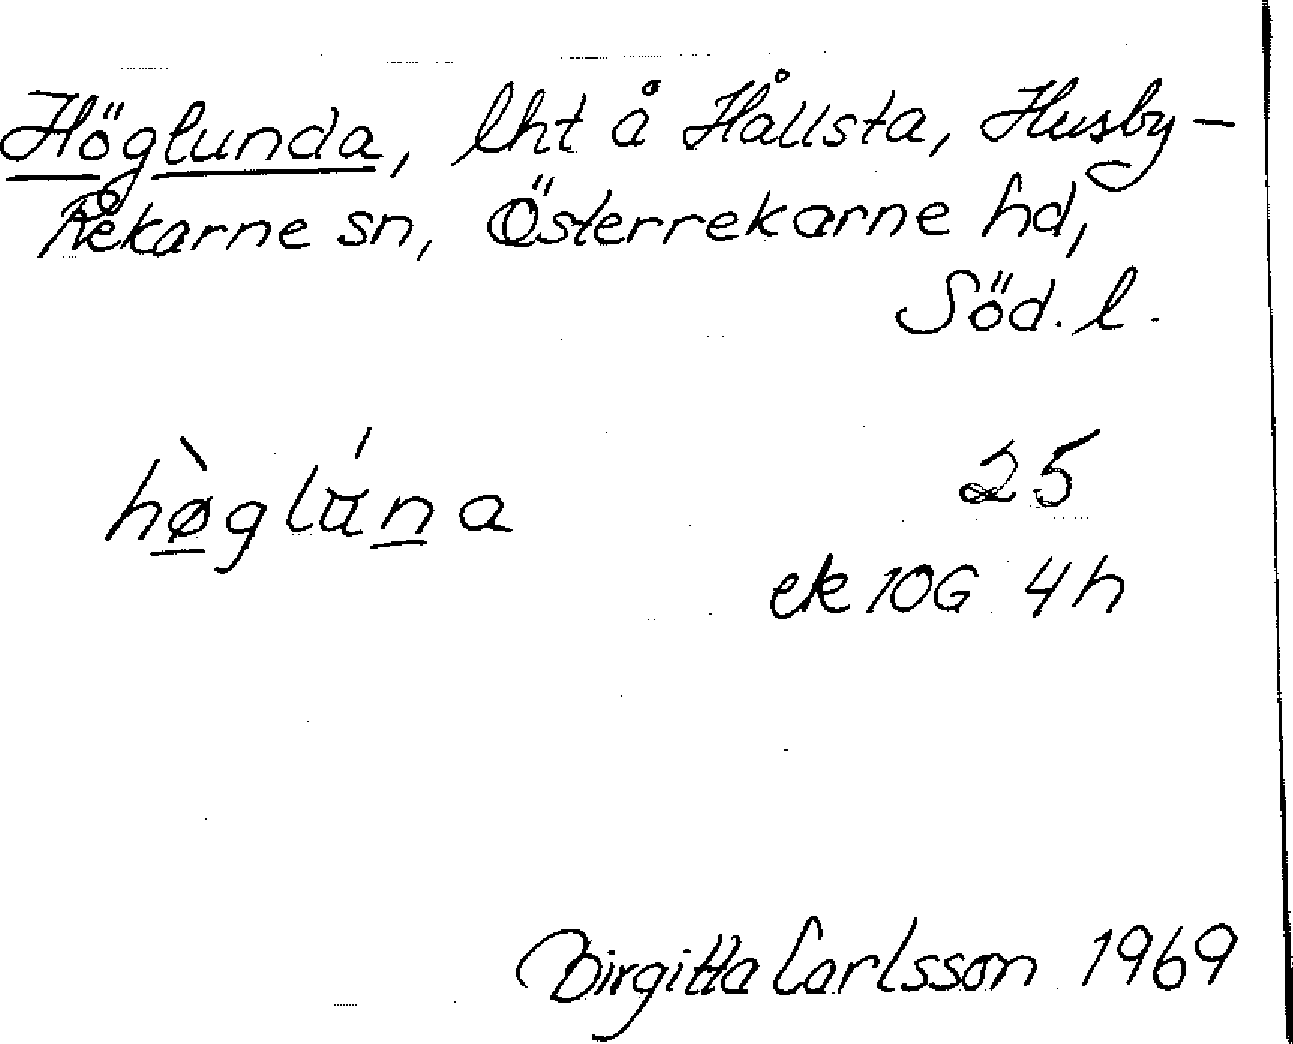 Höglunda, lht å Hållsta, Husby-
Rekarne sn, Österrekarne hd,
Söd. l.
hø̠̀glún̠a
25
ek 10G 4h
Birgitta Carlsson 1969